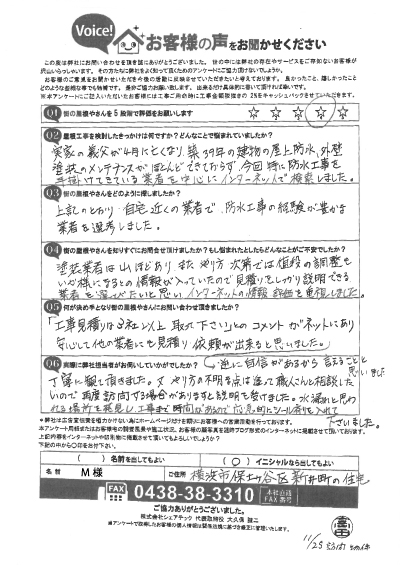 Voice!
お客様の声をお聞かせください
この度は弊社にお問い合わせを頂き誠にありがとうございました。世の中には弊社の存在やサービスをご存知ないお客様が
沢山いらっしゃいます。その方たちに弊社をよく知って頂くためのアンケートにご協力下さいませ。
お客様のご意見をお聞かせいただき今後の運営に反映させていただきたいと考えております。良かったこと、嬉しかったこと
どのような些細な事でも結構です。是非ご協力お願い致します。出来るだけ具体的に書いて頂ければ幸いです。
※本アンケートにご記入いただいたお客様には工事ご用命時に工事金額税抜きの2%をキャッシュバックさせていただきます。
Q1 街の屋根やさんを5段階で評価をお願いします
☆ ☆ ☆ ☆ ☆
Q2 屋根工事を検討したきっかけは何ですか?どんなことで悩まれていましたか?
実家の義父が4月に亡くなり、築39年の建物の屋上防水、外壁
塗装のメンテナンスがほとんどできておらず、今回特に防水工事を
手掛けてきている業者を中心にインターネットで検索しました。
Q3 街の屋根やさんをどのように探しましたか?
上記のとおり、自宅近くの業者で、防水工事の経験が豊かな
業者を選考しました。
Q4 街の屋根やさんを知りすぐにお問合せ頂けましたか?もし悩まれたとしたらどんなことがご不安でしたか?
塗装業者は山ほどあり、また、やり方次第では値段の調整も
いか様になるとの情報が入っていたので、見積りでしっかり説明できる
業者を選びたいと思い、インターネットの情報、評価を重視しました。
Q5 何が決め手となり街の屋根やさんにお問い合わせ頂きましたか?
「工事見積りは3社以上取って下さい」とのコメントがネットにあり
安心して他の業者にも見積り依頼が出来ると思いました。
逆に自信があるから言えることと
思いました
Q6 実際に弊社担当者がお伺いしていかがでしたか?
丁寧に観て頂きました。又、やり方の不明な点は追って職人さんと相談したい
ので再度訪問する場合がありますと説明を受けました。水漏れと思わ
れる場所を発見し、工事まで時間があるので応急的にシール剤を入れて
下さいました。
※弊社は広告宣伝費を極力かけない為にホームページだけを頼りにお客様への営業活動を行っております。
本アンケート用紙またはお客様宅の調査風景や施工状況、お客様の顔写真を活的ブログ形式のインターネットに掲載させて頂いております。
上記内容をインターネットや印刷物に掲載させて頂いてもよろしいでしょうか?
下記の中から○印をお付け下さい。
( ) 名前を出してもよい ( ○ ) イニシャルなら出してもよい
名前 M様 ご住所 横浜市保土ヶ谷区新井町の住宅
FAX 0438-38-3310 本社直通 FAX番号
ご協力ありがとうございました。
株式会社シェアテック 代表取締役 大久保 健二
※アンケートで取得したお客様の個人情報は関係法規に基づき厳正に管理いたします。
富田
11/25 訪問